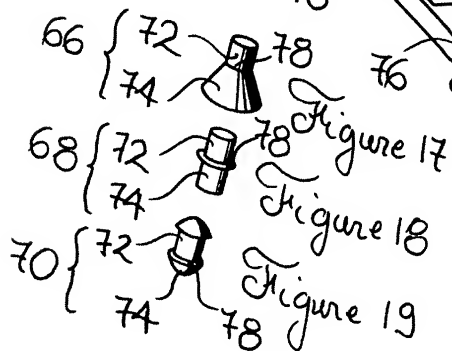 66 { 72 78
74
76
Figure 17
68 { 72 78
74
Figure 18
70 { 72
74 78
Figure 19